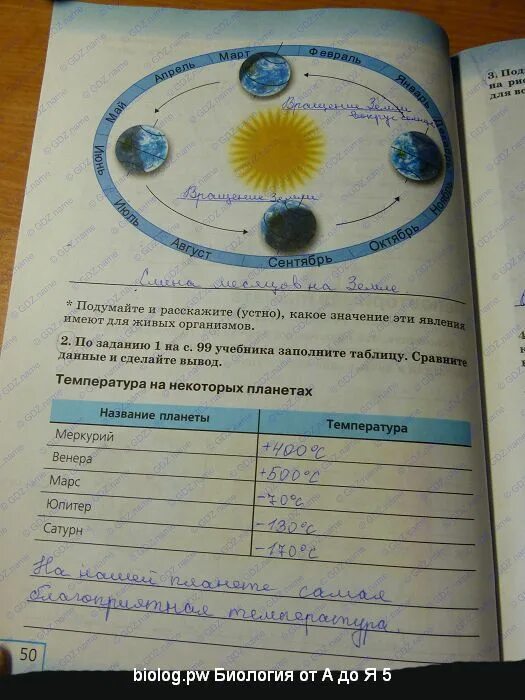 Март
Февраль
Январь
Декабрь
Ноябрь
Октябрь
Сентябрь
Август
Июль
Июнь
Май
Апрель
Вращение Земли
вокруг солнца
Вращение Земли
Смена месяцов на Земле.
* Подумайте и расскажите (устно), какое значение эти явления
имеют для живых организмов.
2. По заданию 1 на с. 99 учебника заполните таблицу. Сравните
данные и сделайте вывод.
Температура на некоторых планетах
Название планеты Температура
Меркурий +400°С
Венера +500°С
Марс -70°С
Юпитер -130°С
Сатурн -170°С
На нашей планете самая
благоприятная температура.
50
3. Под
на рис
для во
© GDZ.name
biolog.pw Биология от А до Я 5